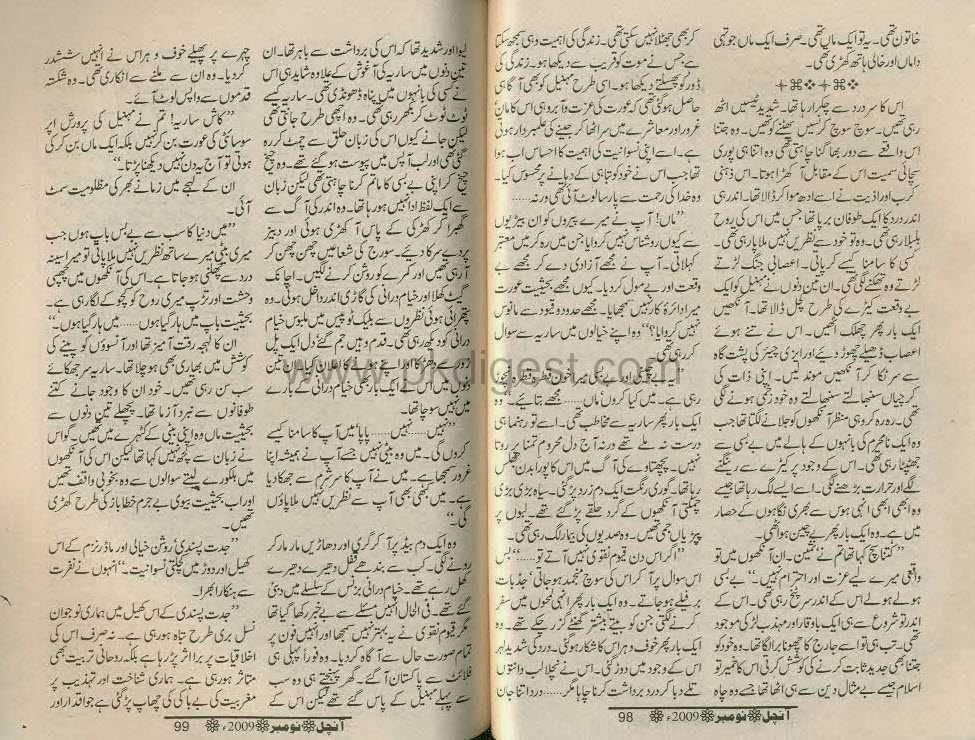 خاتون تھی۔ یہ تو ایک ماں تھی۔ صرف ایک ماں جو تہی
داماں اور خالی ہاتھ کھڑی تھی۔
اس کا سر درد سے چکرا رہا تھا۔ شدید ٹیسیں اٹھ
رہی تھیں۔ سوچ سوچ کر نسیں پھٹنے کو تھیں۔ وہ جتنا
اس واقعے سے دور بھاگنا چاہتی تھی وہ اتنا ہی پوری
سچائی سمیت اس کے مقابل آ کھڑا ہوتا۔ اس ذہنی
کرب اور اذیت نے اسے ادھ موا کر ڈالا تھا۔ اندر ہی
اندر درد کا ایک طوفان برپا تھا جس میں اس کی روح
بلبلا رہی تھی۔ وہ تو خود سے نظریں نہیں ملا پا رہی تھی۔
کسی کا سامنا کیسے کر پاتی۔ اعصابی جنگ لڑتے
لڑتے وہ تھکنے لگی تھی۔ ان تین دنوں نے مہنیل کو ایک
بے وقعت کیڑے کی طرح کچل ڈالا تھا۔ آنکھیں
ایک بار پھر چھلک اٹھیں۔ اس نے تنے ہوئے
اعصاب ڈھیلے چھوڑ دیے اور ایزی چیئر کی پشت گاہ
سے سر ٹکا کر آنکھیں موند لیں۔ اپنی ذات کی
کرچیاں سنبھالتے سنبھالتے وہ خود زخمی ہونے لگی
تھی۔ رہ رہ کر وہی منظر آنکھوں کو جلانے لگتا تھا جب
وہ ایک نامحرم کی بانہوں کے ہالے میں بے بسی سے
جھنپٹا رہی تھی۔ اس کے وجود پر کیڑے سے رینگنے
لگے اور حرارت بڑھنے لگی۔ اسے ایسے لگ رہا تھا جیسے
وہ ابھی بھی انہی ہوس سے بھری نگاہوں کے حصار
میں ہے۔ وہ ایک بار پھر بے چین ہو اٹھی۔
”کتنا سچ کہا تھا تم نے ثمین۔ ان آنکھوں میں تو
واقعی میرے لیے عزت اور احترام نہیں۔“ بے بسی
ہولے ہولے اس کے اندر سر پٹخ رہی تھی۔ اس کے
اندر تو شروع سے ہی ایک باوقار اور مہذب لڑکی موجود
تھی۔ تب ہی تو اسے جارج کا چھونا برا لگا تھا۔ وہ خود کو
جتنا بھی جدید ثابت کرنے کی کوشش کرتی اس کا خمیر تو
اسلام جیسے بے مثال دین سے ہی اٹھا تھا جسے وہ چاہ
کر بھی جھٹلا نہیں سکتی تھی۔ زندگی کی اہمیت وہی سمجھ سکتا
ہے جس نے موت کو قریب سے دیکھا ہو۔ زندگی کی
ڈور کو پھسلتے دیکھا ہو۔ اسی طرح مہنیل کو بھی آ گاہی
حاصل ہو گئی تھی کہ عورت کی عزت و آبرو ہی اس کا مان
غرور اور معاشرے میں سر اٹھا کر جینے کی علمبردار ہوتی
ہے۔ اسے اپنی نسوانیت کی اہمیت کا احساس اب ہوا
تھا جب اس نے خود کو تباہی کے دہانے پر محسوس کیا۔
وہ خدا کی رحمت سے پارسا لوٹ آئی تھی ورنہ......
”ماں! آپ نے میرے پیروں کو ان بیڑیوں
سے کیوں روشناس نہیں کروایا جن میں رہ کر میں معتبر
کہلاتی۔ آپ نے مجھے آزادی دے کر مجھے بے
وقعت اور بے مول کر دیا۔ کیوں مجھے بحیثیت عورت
میرا دائرۂ کار نہیں سمجھایا۔ مجھے حدود و قیود سے مانوس
نہیں کروایا؟“ وہ اپنے خیالوں میں ساریہ سے سوال
کر رہی تھی۔
”یہ بے چینی اور بے بسی میرا خون قطرہ قطرہ نچوڑ
رہی ہے۔ میں کیا کروں ماں...... مجھے بتایئے۔“ وہ
ایک بار پھر ساریہ سے مخاطب تھی۔ اسے تو رہنما ہی
درست نہ ملے تھے ورنہ آج دل محروم تمنا پر روتا
نہیں۔ پچھتاوے کی آگ میں اس کا پورا بدن جھلس
رہا تھا۔ گوری رنگت ایک دم زرد پڑ گئی۔ سیاہ بڑی بڑی
چمکتی آنکھوں کے گرد حلقے پڑ گئے تھے۔ لبوں پر
پپڑیاں جمی تھیں۔ وہ صدیوں کی بیمار لگ رہی تھی۔
”اگر اس دن قیوم نقوی نہیں آتے تو......“ بس
اس سوال پر آ کر اس کی سوچ منجمد ہو جاتی‘ جذبات
برفیلے ہو جاتے۔ وہ ایک بار پھر انہی لمحوں میں سفر
کرنے لگتی جن کو بیتے بیشتر گھنٹے گزر چکے تھے۔ وہ
ایک بار پھر خوف و ہراس کا شکار ہو گئی۔ درد کی شدید لہر
اس کے وجود میں دوڑ گئی۔ اس نے نچلا لب دانتوں
تلے دبا کر درد برداشت کرنا چاہا مگر...... درد اتنا جان
آنچل نومبر 2009ء 98
لیوا اور شدید تھا کہ اس کی برداشت سے باہر تھا۔ ان
تین دنوں میں ساریہ کی آغوش کے علاوہ شاید ہی اس
نے کسی کی بانہوں میں پناہ ڈھونڈی تھی۔ ساریہ کیسے
ٹوٹ ٹوٹ کر بکھر رہی تھی۔ وہ اچھی طرح جانتی تھی
لیکن جانے کیوں اس کی زبان حلق سے چمٹ کر رہ
گئی تھی اور لب آپس میں پیوست ہو گئے تھے۔ وہ چیخ
چیخ کر اپنی بے بسی کا ماتم کرنا چاہتی تھی لیکن زبان
سے ایک لفظ ادا نہیں ہو رہا تھا۔ وہ اندر کی آگ سے
گھبرا کر کھڑکی کے پاس آ کھڑی ہوئی اور دبیز
پردے سرکا دیئے۔ سورج کی شعاعیں چھن چھن کر
آ رہی تھیں اور کمرے کو روشن کرنے لگیں۔ اچانک
گیٹ کھلا اور خیام درانی کی گاڑی اندر داخل ہوئی۔ وہ
پتھرائی ہوئی نظروں سے بلیک ٹو پیس میں ملبوس خیام
درانی کو دیکھ رہی تھی۔ قدم وہیں جم گئے دل ایک پل
زور سے دھڑکا
دنوں میں اس نے ایک بار بھی خیام درانی کے بارے
میں نہیں سوچا تھا۔
”نہیں...... نہیں...... پاپا میں آپ کا سامنا کیسے
کروں گی۔ میں وہ بیٹی نہیں جسے آپ نے ہمیشہ اپنا
غرور سمجھا ہے۔ میں نے آپ کا سر شرم سے جھکا دیا
ہے۔ میں کبھی بھی آپ سے نظریں نہیں ملا پاؤں
گی۔“
وہ ایک دم بیڈ پر آ کر گری اور دھاڑیں مار مار کر
رونے لگی۔ کب سے بندھے قفل دھیرے دھیرے
کھل رہے تھے۔ خیام درانی بزنس کے سلسلے میں دبئی
گئے تھے۔ فی الحال انہیں مسئلے سے بے خبر رکھا گیا تھا
مگر قیوم نقوی نے یہ بہتر نہیں سمجھا اور انہیں فون پر
تمام صورت حال سے آ گاہ کر دیا۔ وہ فوراً پہلی ہی
فلائٹ سے پاکستان آ گئے۔ گھر پہنچتے ہی وہ سب
سے پہلے مہنیل کے پاس گئے تھے لیکن اس کے
چہرے پر پھیلے خوف و ہراس نے انہیں ششدر
کر دیا۔ وہ ان سے ملنے سے انکاری تھی۔ وہ شکستہ
قدموں سے واپس لوٹ آئے۔
”کاش ساریہ! تم نے مہنیل کی پرورش اپر
سوسائٹی کی عورت بن کر نہیں بلکہ ایک ماں بن کر کی
ہوتی تو آج یہ دن نہیں دیکھنا پڑتا۔“
ان کے لہجے میں زمانے بھر کی مظلومیت سمٹ
آئی۔
”میں دنیا کا سب سے بے بس باپ ہوں جب
میری بیٹی میرے ساتھ نظریں نہیں ملا پاتی تو میرا سینہ
درد سے چھلنی ہو جاتا ہے۔ اس کی آنکھوں میں چھپی
وحشت اور تڑپ میری روح کو کچوکے لگا رہی ہے۔
بحیثیت باپ میں ہار گیا ہوں...... میں ہار گیا ہوں۔“
ان کا لہجہ رقت آمیز تھا اور آنسوؤں کو پینے کی
کوشش میں بھاری بھی ہو چلا تھا۔ ساریہ سر جھکائے
سب سن رہی تھیں۔ خود ان کا وجود جانے کتنے
طوفانوں سے نبرد آزما تھا۔ پچھلے تین دنوں سے
بحیثیت ماں وہ اپنی بیٹی کے کٹہرے میں تھیں۔ گو اس
نے زبان سے کچھ نہیں کہا تھا لیکن اس کی آنکھوں
میں ہلکورے لیتے سوالوں سے وہ بخوبی واقف تھیں
اور اب بحیثیت بیوی بے جرم خطا باز کی طرح کھڑی
تھیں۔
”جدت پسندی‘ روشن خیالی اور ماڈرنزم کے اس
کھیل اور دوڑ میں کچلتی نسوانیت۔“ انہوں نے نفرت
سے ہنکارا بھرا۔
”جدت پسندی کے اس کھیل میں ہماری نوجوان
نسل بری طرح تباہ ہو رہی ہے۔ نہ صرف اس کی
اخلاقیات پر برا اثر پڑ رہا ہے بلکہ روحانی تربیت بھی
متاثر ہو رہی ہے۔ ہماری شناخت اور تہذیب پر
مغربیت کی بے باکی کی چھاپ پڑ گئی ہے جو اقدار اور
آنچل نومبر 2009ء 99
www.pkdigest.com